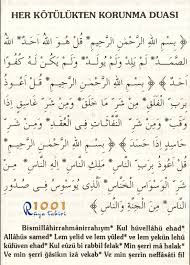 HER KÖTÜLÜKTEN KORUNMA DUASI
بِسْمِ اللهِ الرَّحْمنِ الرَّحِيمِ قُلْ هُوَ اللهُ أَحَدٌ اللهُ
الصَّمَدُ لَمْ يَلِدْ وَلَمْ يُولَدْ وَلَمْ يَكُنْ لَهُ كُفُوًا
أَحَدٌ بِسْمِ اللهِ الرَّحْمنِ الرَّحِيمِ قُلْ أَعُوذُ
بِرَبِّ الْفَلَقِ مِنْ شَرِّ مَا خَلَقَ وَمِنْ شَرِّ غَاسِقٍ
إِذَا وَقَبَ وَمِنْ شَرِّ النَّفَّاثَاتِ فِي الْعُقَدِ وَمِنْ
شَرِّ حَاسِدٍ إِذَا حَسَدَ بِسْمِ اللهِ الرَّحْمنِ الرَّحِيمِ
قُلْ أَعُوذُ بِرَبِّ النَّاسِ مَلِكِ النَّاسِ إِلهِ النَّاسِ
مِنْ شَرِّ الْوَسْوَاسِ الْخَنَّاسِ الَّذِي يُوَسْوِسُ فِي
صُدُورِ النَّاسِ مِنَ الْجِنَّةِ وَالنَّاسِ
1001
Rüya Tabiri
Bismillâhirrahmânirrahıym* Kul hüvellâhü ehad*
Allâhüs samed* Lem yelid ve lem yûled* ve lem yekün lehû
küfüven ehad* Kul eûzü bi rabbil felak* Min şerri mâ halak*
Ve min şerri ğâsikın izâ vekab* Ve min şerrin neffâsâti fil